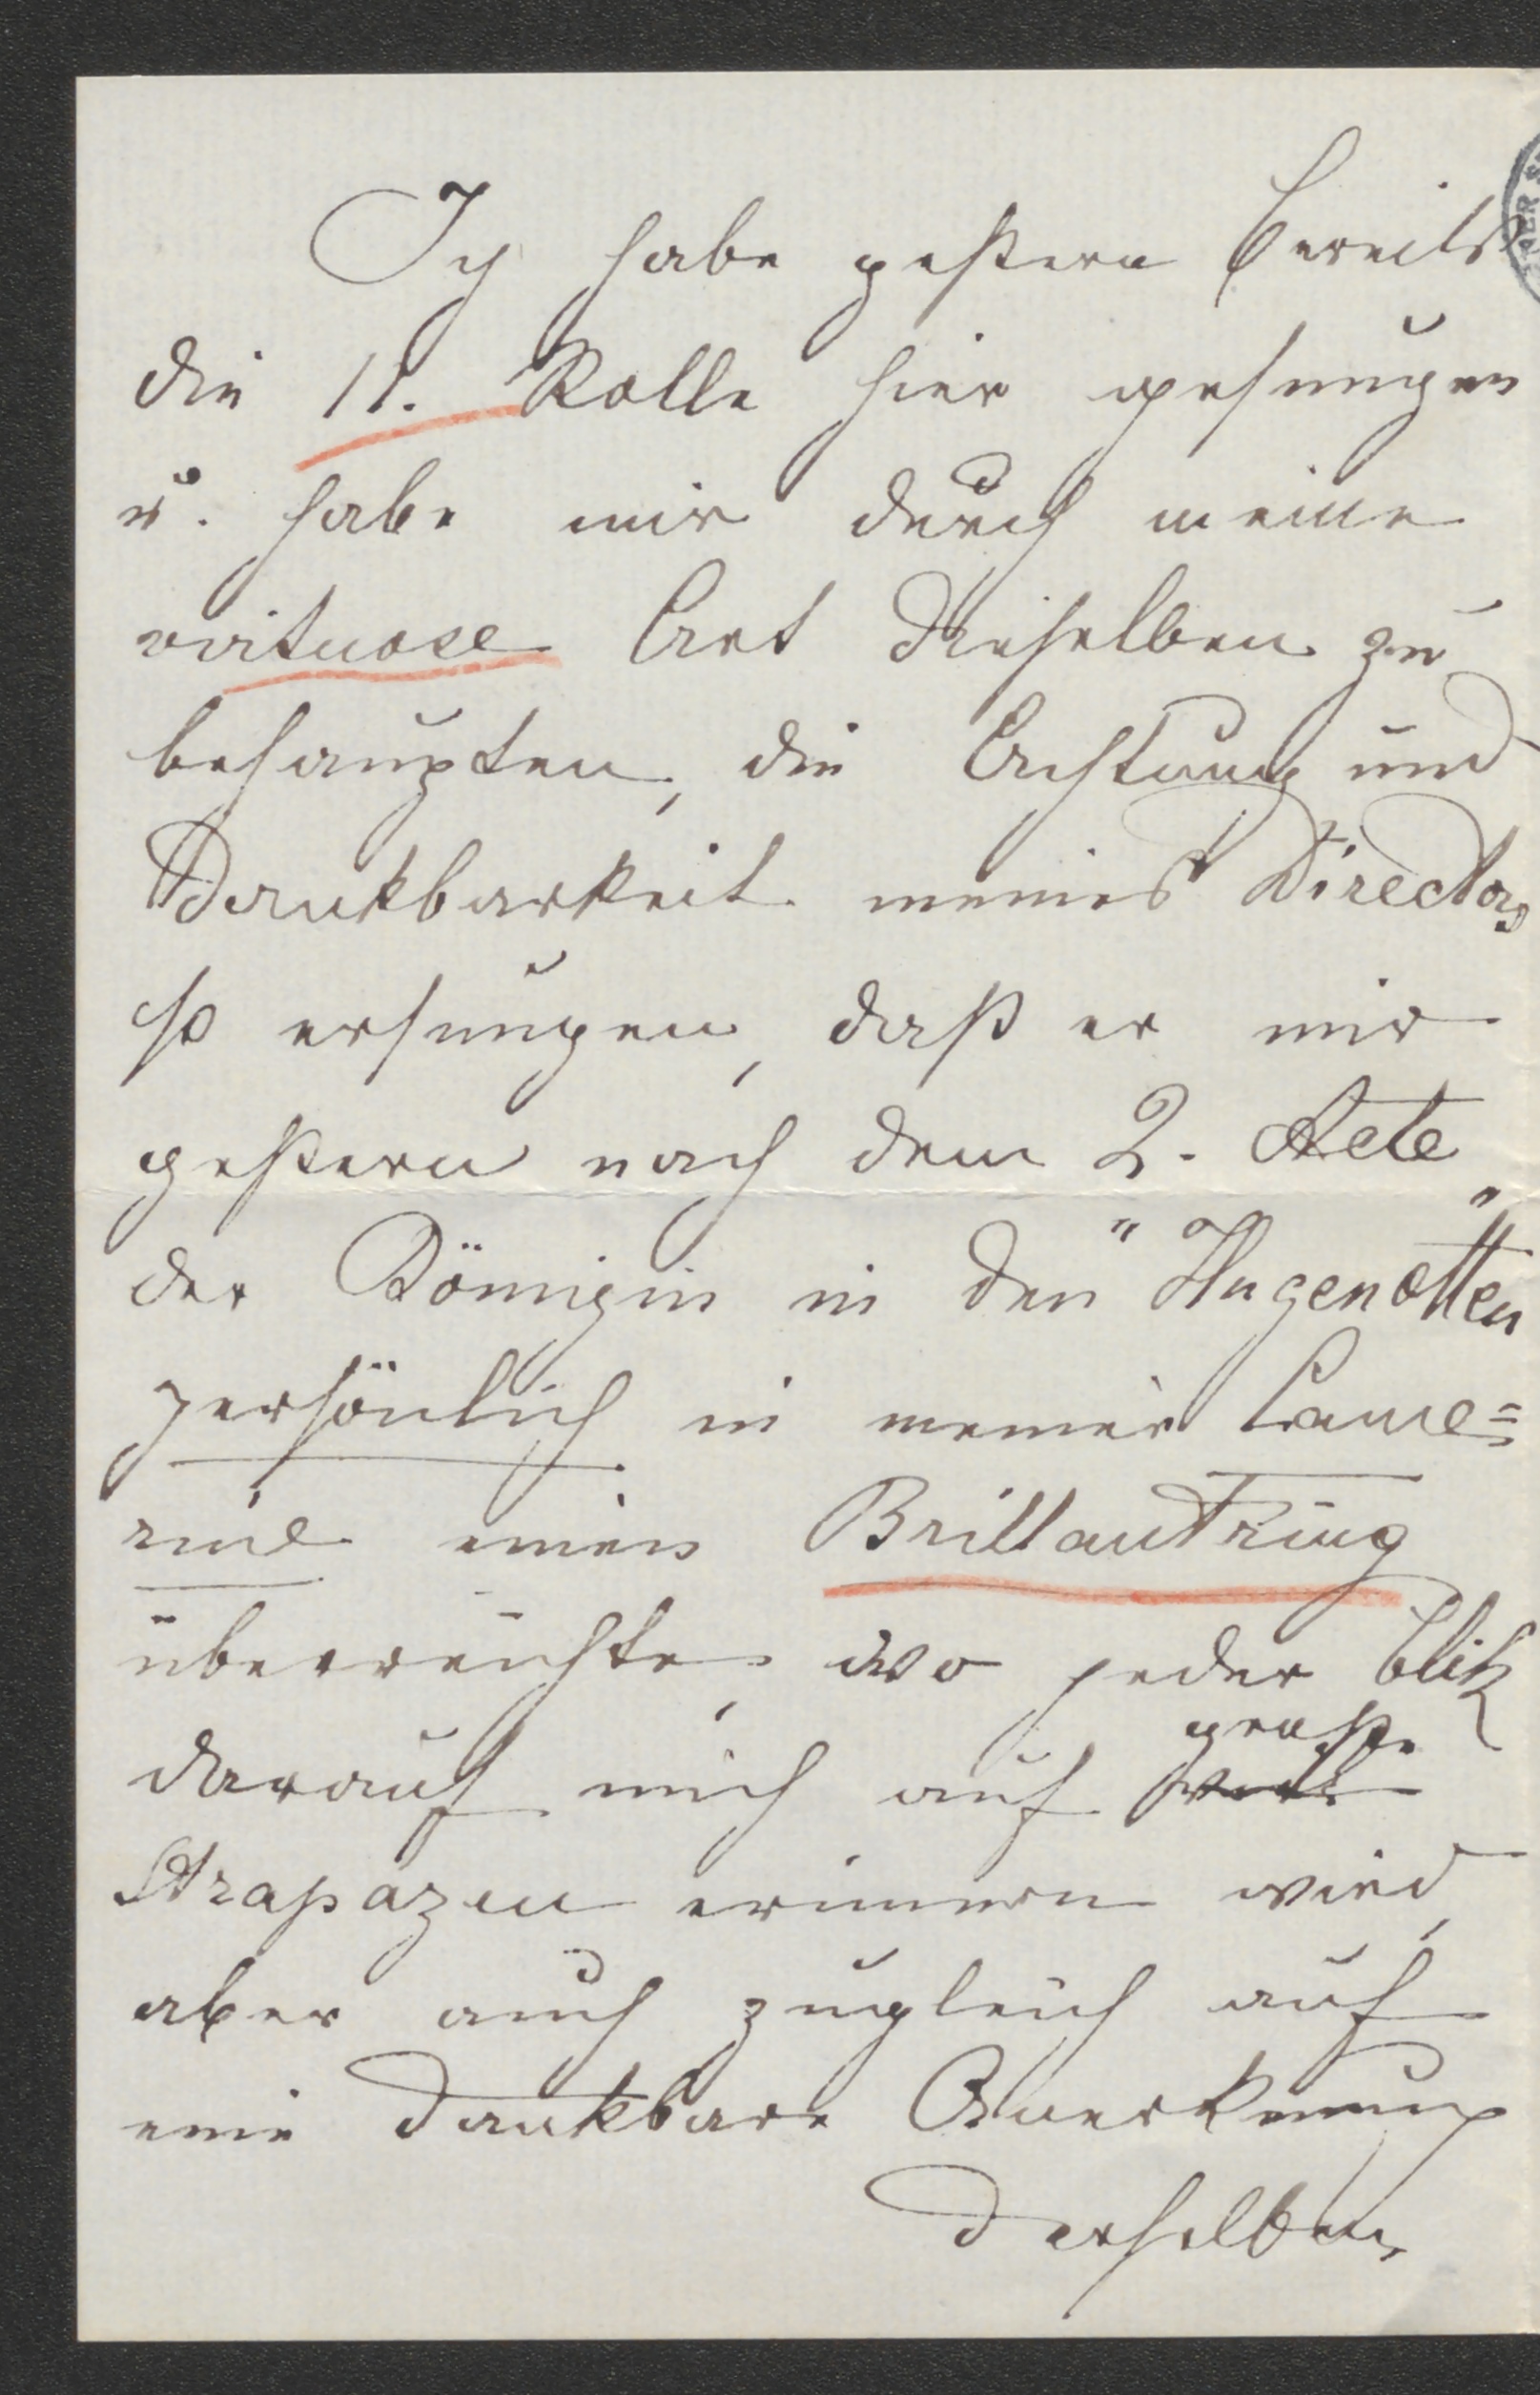 Ich habe gestern bereits
die 11. Rolle hier gesungen
u. habe mir durch meine
virtuose Art dieselben zu
behaupten, die Achtung und
Dankbarkeit meines Directors
so ersungen, daß er mir
gestern nach dem 2. Acte
der Königin in den "Hugenotten"
persönlich in meiner Came=
rine einen Brillantring
überreichte, wo jeder Blik
darauf mich auf große
Strapazen erinnern wird,
aber auch zugleich auf
eine dankbare Anerkennung
derselben,